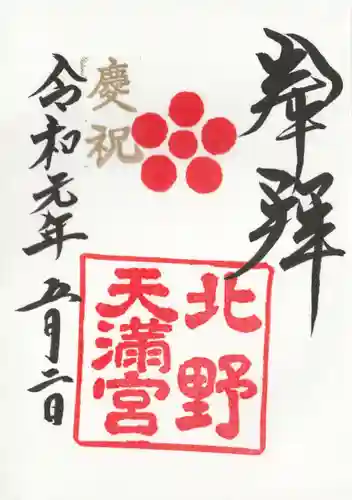 奉拝
北野
天満宮
慶祝
令和元年五月二日